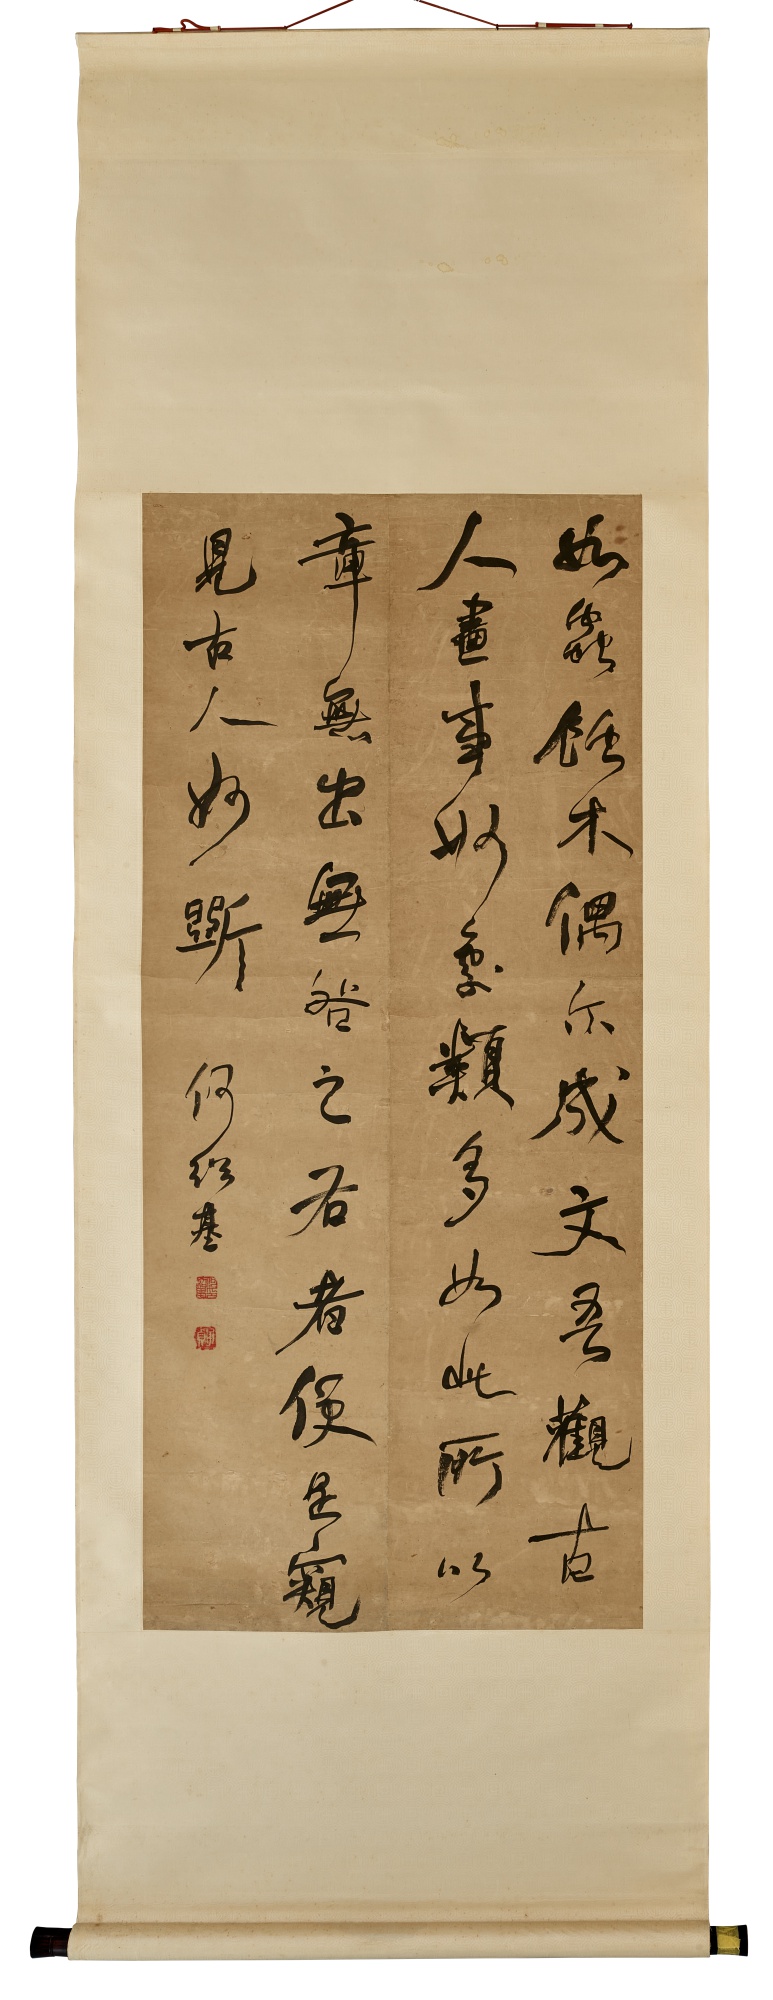 如蟲蝕木偶尔成文吾觀古
人畫事妙處類多如此所以
章無出無咎之右者便是窺
見古人妙斲 何紹基